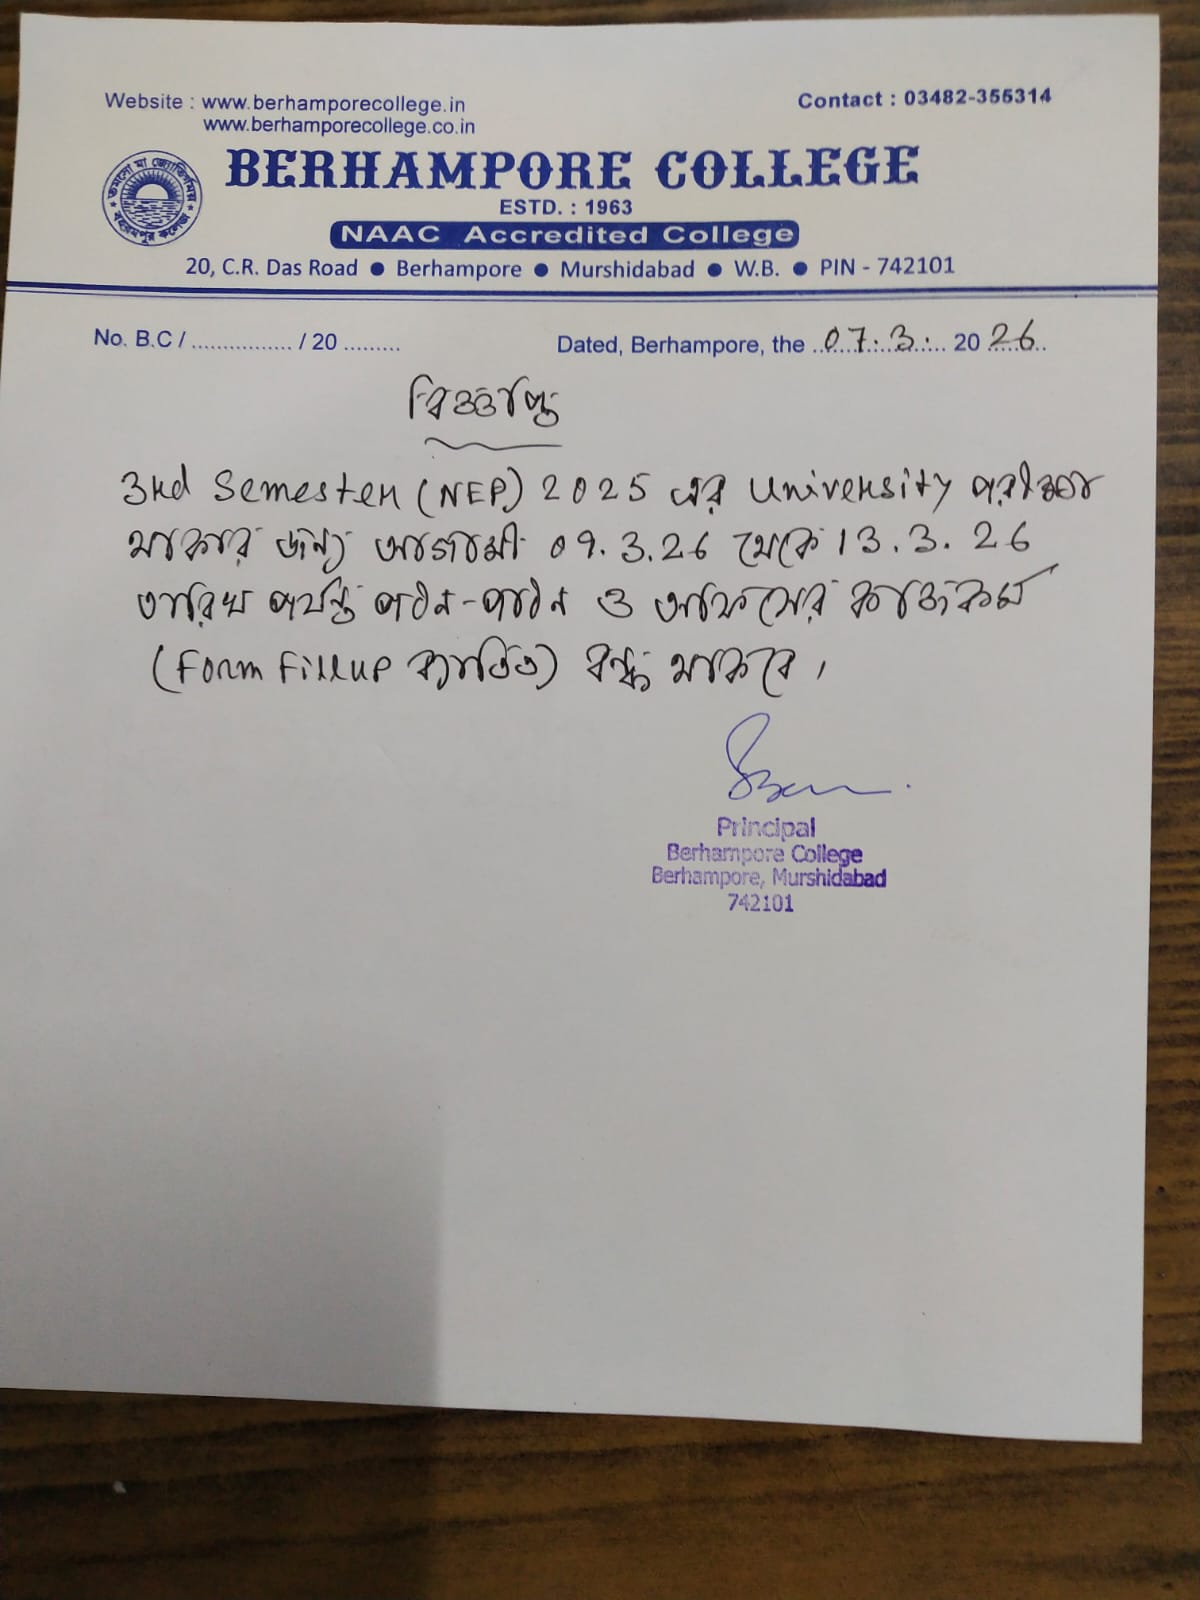 Website : www.berhamporecollege.in
Contact : 03482-355314
www.berhamporecollege.co.in
BERHAMPORE COLLEGE
ESTD. : 1963
NAAC Accredited College
20, C.R. Das Road ● Berhampore ● Murshidabad ● W.B. ● PIN - 742101
No. B.C / ................ / 20 .........
Dated, Berhampore, the 07.3. 2026
বিজ্ঞপ্তি
3rd Semester (NEP) 2025 এর University পরীক্ষা
থাকার জন্য আগামী 09.3.26 থেকে 13.3.26
তারিখ পর্যন্ত পঠন-পাঠন ও অফিসের কাজকর্ম
(Form Fillup ব্যতীত) বন্ধ থাকবে।
Principal
Berhampore College
Berhampore, Murshidabad
742101